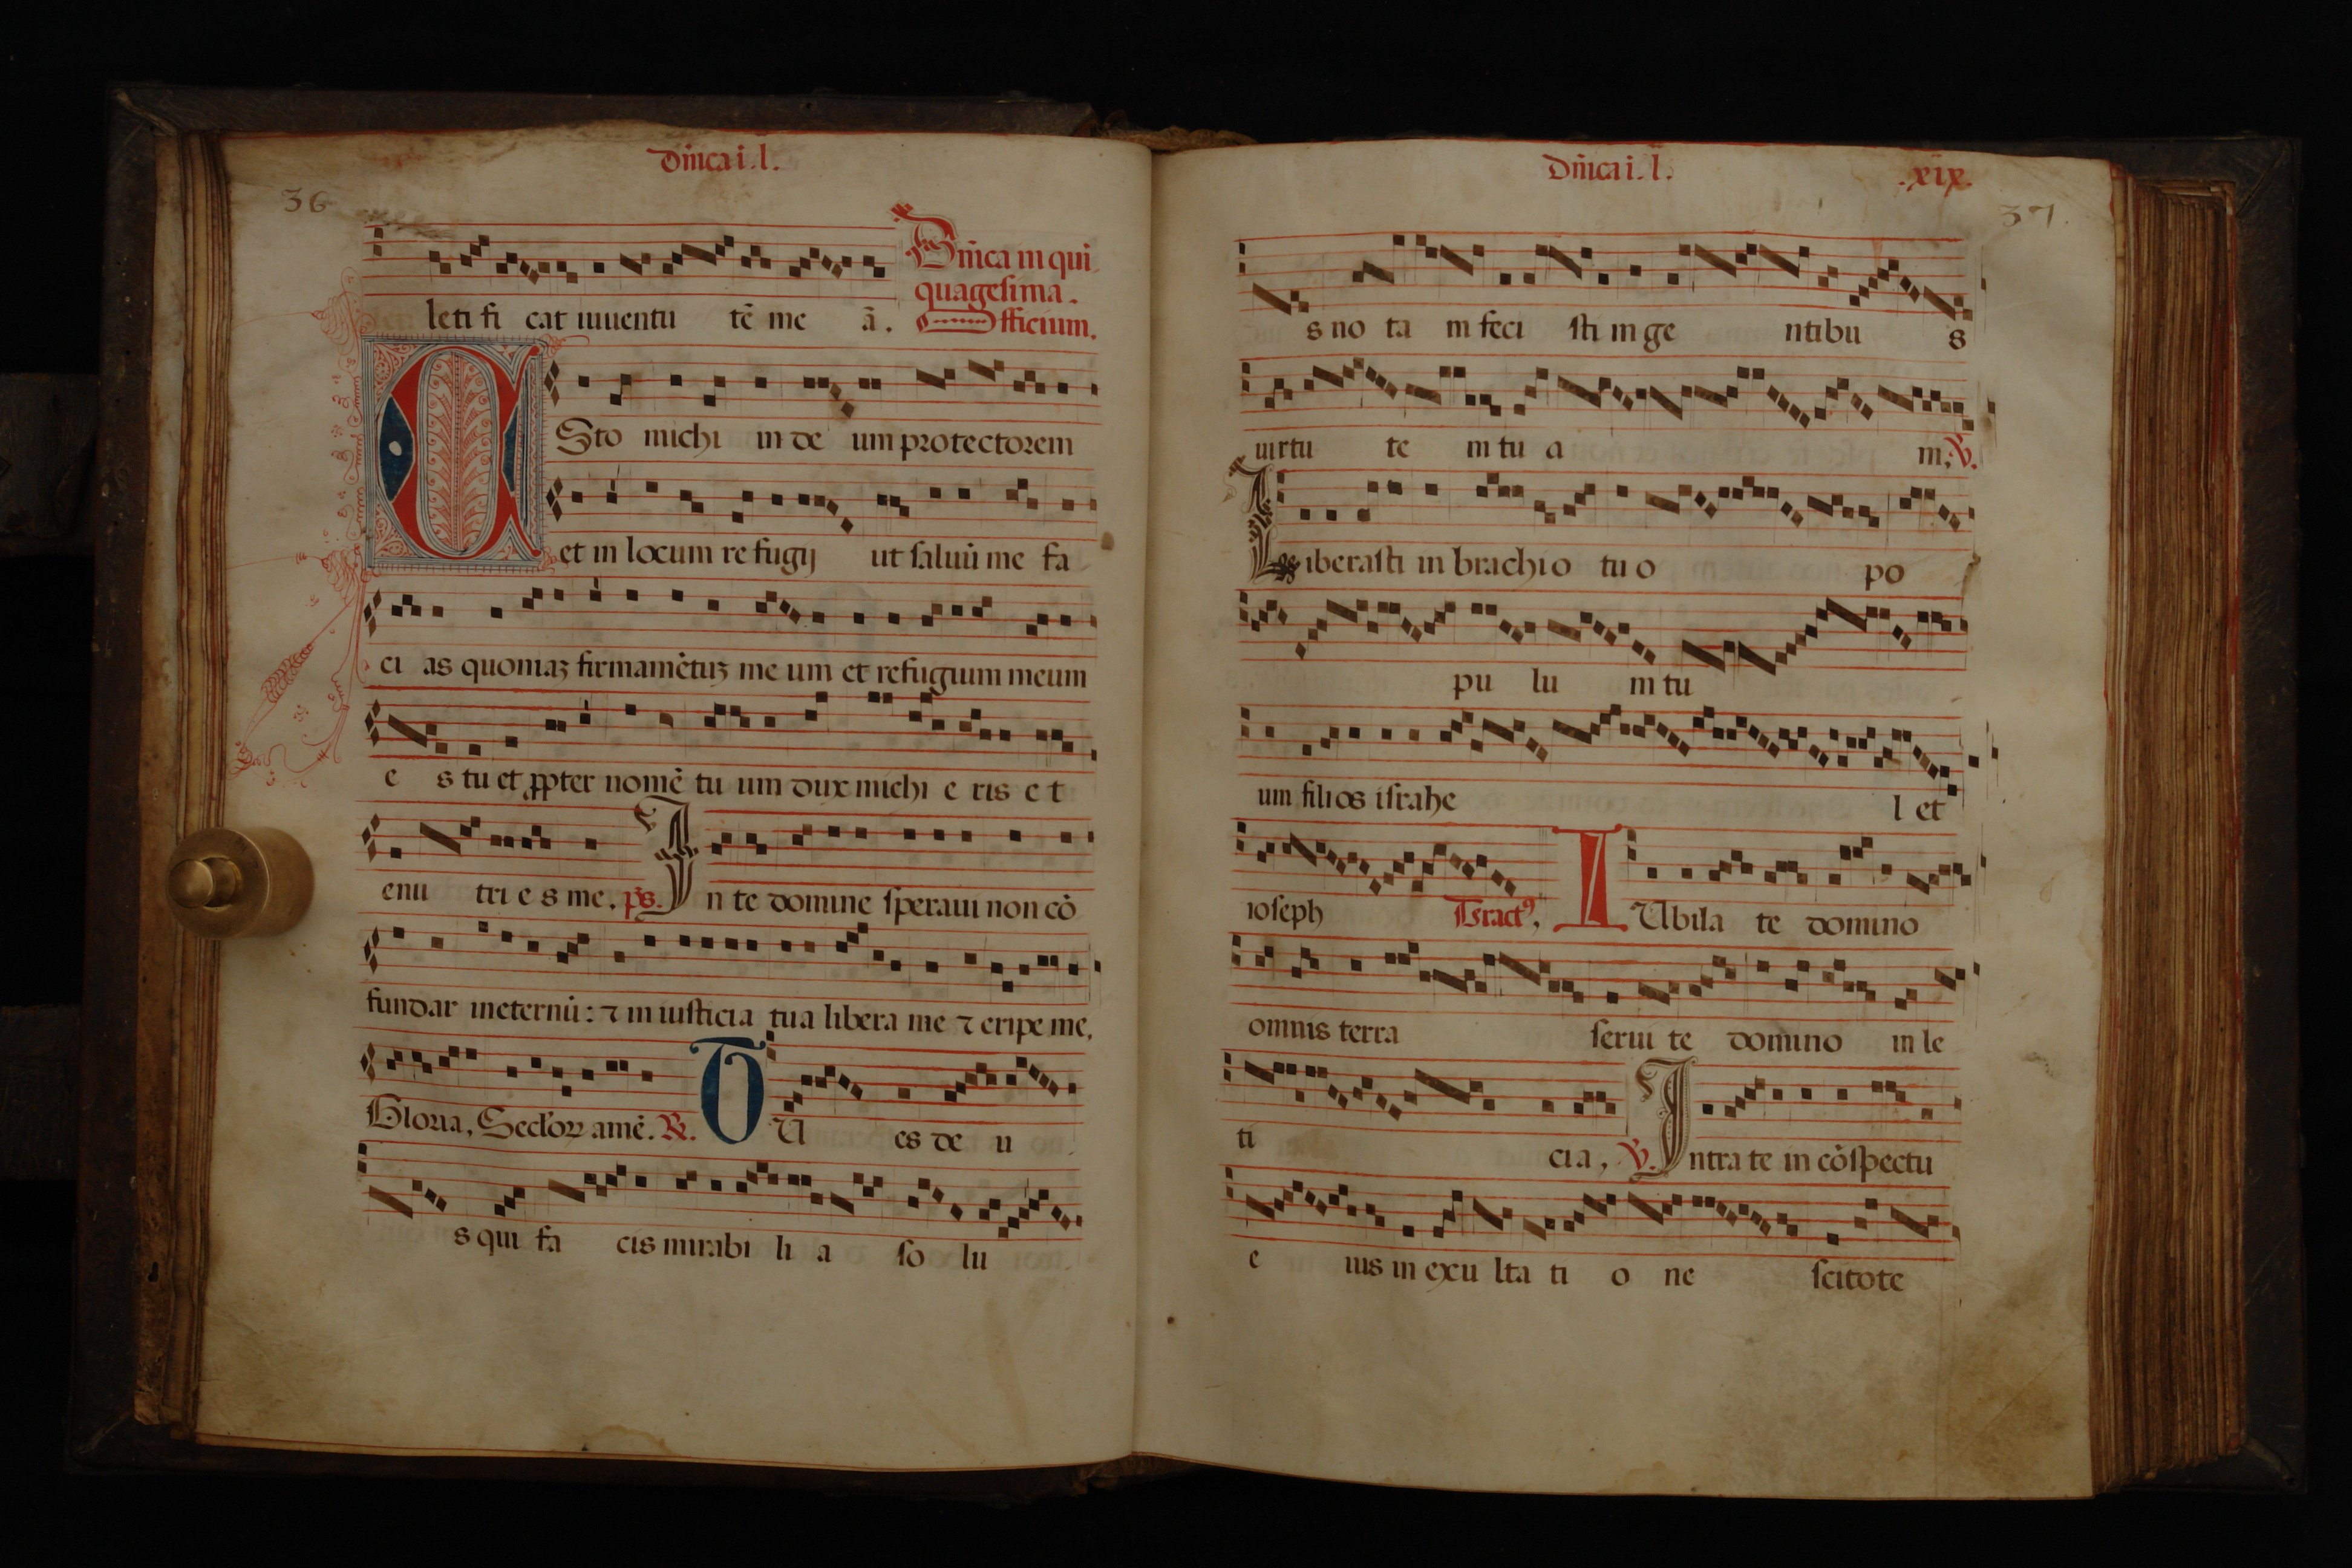 dñica i. l.
36
Dñica in qui
leti fi cat iuuentu tē me ā.
quagesima.
Officium.
ESto michi in de um protectorem
et in locum re fugij ut saluū me fa
ci as quoniaꝫ firmamētuꝫ me um et refugium meum
e s tu et ꝓpter nomē tu um dux michi e ris e t
enu tri e s me. ps. In te domine speraui non cō
fundar ineternū: ⁊ in iusticia tua libera me ⁊ eripe me.
Gloria. Seculoꝝ amē. R. TU es de u
s qui fa cis mirabi li a so lu
Dñica i. l. .xix.
37.
s no ta m feci sti in ge ntibu s
uirtu te m tu a m. V.
Liberasti in brachi o tu o po
pu lu m tu
um filios israhe l et
ioseph Tractꝰ. IUbila te domino
omnis terra serui te domino in le
ti ci a. V. Intra te in cōspectu
e ius in exu lta ti o ne scitote